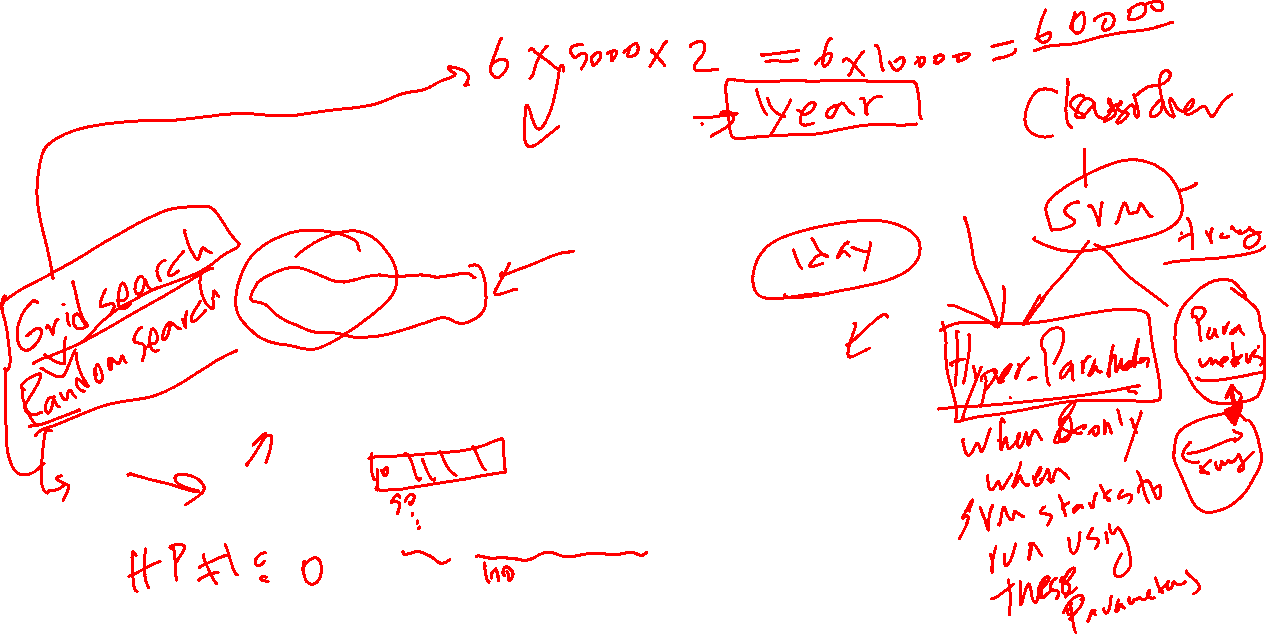 6 x 5000 x 2 = 6 x 10000 = 60000
1year
Classifier
SVM
1day
Grid search
Random search
Hyper-Parameters
Para
meters
when & only
when
SVM starts to
run using
these
Parameters
40
50
HP#1: 0
100